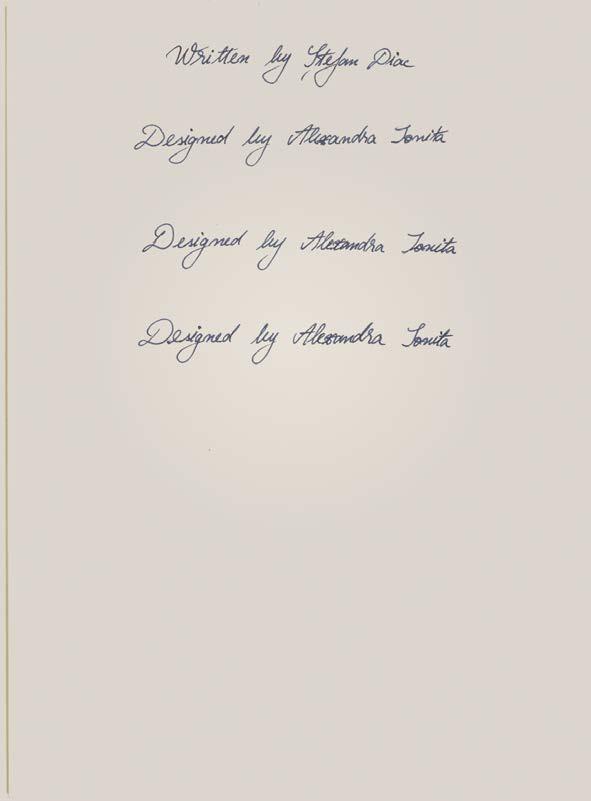 Written by Ștefan Diac
Designed by Alexandra Ionita
Designed by Alexandra Ionita
Designed by Alexandra Ionita